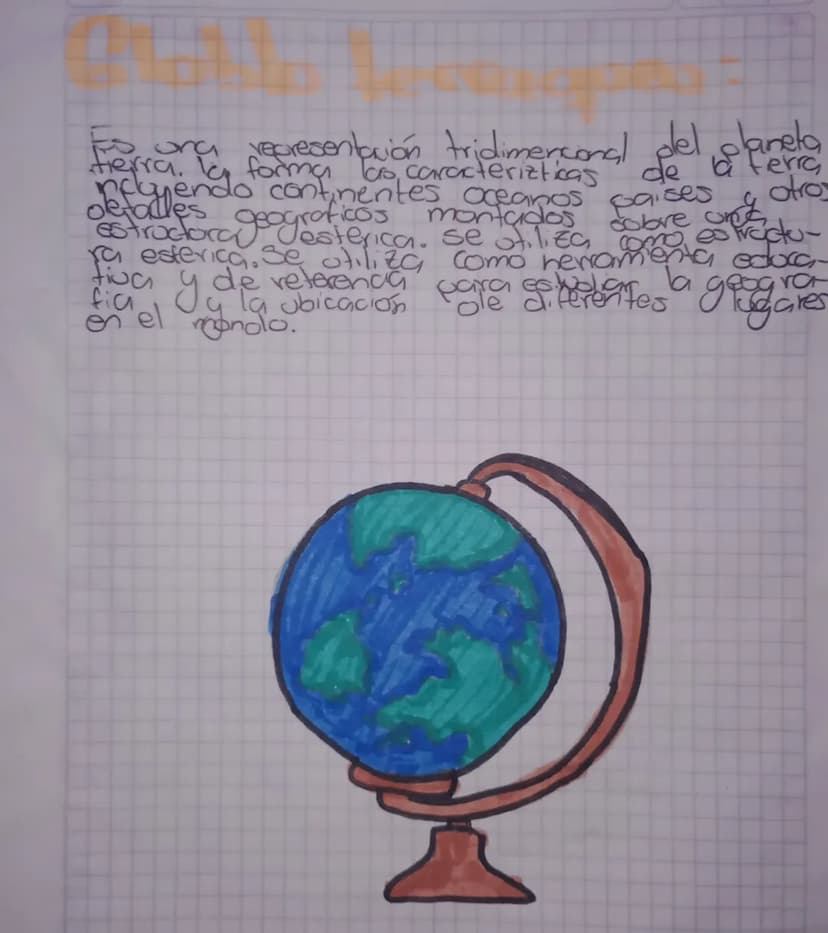 Globlo terraqueo:
Es una representación tridimencional del planeta
tierra. la forma las caracterizticas de la terra
incluyendo continentes oceanos paises y otros
detalles geograficos montados sobre una
estructura esferica. se utiliza como estructu-
ra esferica. Se utiliza como herramienta educa-
tiva y de referencia para estudiar la geogra-
fia y la ubicacion de diferentes lugares
en el mundo.